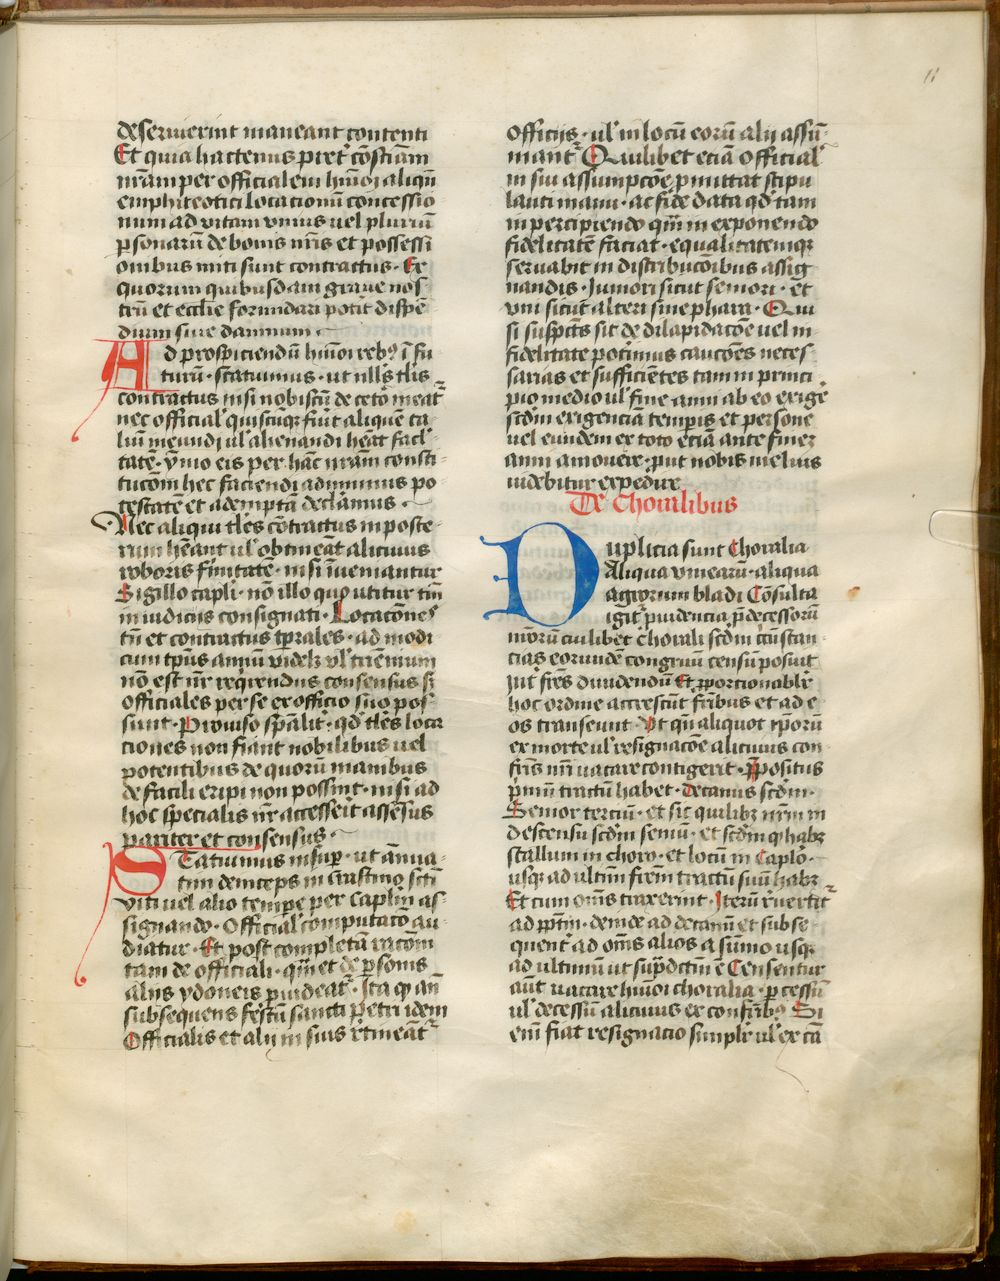 deseruierint maneant contenti
Et quia hactenus pret᷑ cōsciām
nrām per officialem hm̄oi aliqūi
emphiteotici locationū concessio
num ad vitam vnius uel pluriū
ꝑsonarū de bonis nr̄is et possessi
onibus initi sunt contractus · Ex
quorum quibusdam graue nos-
trū et eccl̄ie formidari potūit dispē-
dium siue damnum ·
Ad prospiciendū hm̄oi reb᷒ ī fu
turū · statuimus · ut nllūs tl̄is
contractus nisi nobiscū de cetō ineat᷑
nec official᷑ quiscūqꝫ fiūt aliquē ta
lium ineundi ul᷑ alienandi hēat facl᷑-
tatē · ymo eis per hāc nrām consti-
tucōm hec faciendi adimimus po
testatē et ademptā declāmus ·
Nec aliqui tl̄es cōtractus in poste-
rum hēant ul᷑ obtineāt alicuius
roboris firmitatē · nisi īueniantur
Sigillo capl̄i · nō illo quo utitur tm̄
in iudiciis consignati · Locatōnes
tn̄ et contractus tp̄rales · ad modi
cum tp̄us annū vidēlꝫ vl᷑ triennium
nō est nr̄ reqiꝛendus consensus si
officiales per se ex officio suo pos-
sunt · Prouiso sp̄alit᷑ · qd᷑ tl̄es loca
tiones non fiant nobilibus uel
potentibus de quorū manibus
de facili eripi non possint · nisi ad
hoc specialis nr̄ accesserit assēsus
pariter et consensus ·
Statuimus insup᷑ · ut ānua-
tim deinceps in crastino scti
viti uel alio tempe per capl̄m as-
signando · official᷑ computatō au-
diatur · Et post completā ratōm
tam de officiali · qm̄ et de ꝑsonis
aliis ydoneis ꝓuideat᷑ · Ita ꝙ an̄
subsequens festūm sancti petri idem
Officialis et alij in suis r̄tineāt᷑
officijs · ul᷑ in locū eorū alij assū-
mant᷑ Quilibet eciā official᷑
in sui assumpcōe ꝓmittat stipu
lanti manu · ac fide data qd᷑ tam
in percipiendo qm̄ in exponendo
fidelitatē faciat · equalitatemqꝫ
seruabit in distribucōibus assig
nandis · Juniori sicut seniori · et
vni sicut alteri sine phara · Qui
si suspcūs sit de dilapidacōe uel in-
fidelitate potimus caucōes neces
sarias et sufficiētes tam in princi
pio medio ul᷑ fine anni ab eo exigē
scdm̄ exigenciam temporis et persone
uel eundem ex toto etiā ante finem
anni amouere · put nobis melius
uidebitur expedire
De Choralibus
Duplicia sunt Choralia
Aliqua vinearū · aliqua
agrorum bladi Cōsulta
igit᷑ ꝓuidencia p̄decessorū
nr̄orū cuilibet chorali scdm̄ circūstan-
cias eorundē congruū censū posuit
int᷑ fr̄es diuidendū Et ꝓporcionablr̄
hoc ordine accrescūt fr̄ibus et ad e
os transeunt · Vt qn̄ aliquot rp̄orū
ex morte ul᷑ resignacōe alicuius con-
fr̄is nr̄i uacare contigerit · p̄positus
p̄mū tractū habet · Decanus scdm̄ ·
Senior terciū · et sic quilibꝫ nr̄m in
descensu scdm̄ seniū · et scdm̄ ꝙ habꝫ
stallum in choro · et locū in Capl̄o ·
usqꝫ ad ultim frēm tractū suū habꝫ
Et cum om̄s traxerint · Iterū r̄uertit᷑
ad p̄ptm̄ · deinde ad decanū et subse
quent᷑ ad om̄s alios a sūmo usqꝫ
ad ultimū ut sup̄dctm̄ ē Censentur
aūt uacare hm̄oi choralia · ꝑ cessū
ul᷑ decessū alicuius ex confr̄ib᷒ Si
enī fiat resignacio simplr̄ ul᷑ ex cā